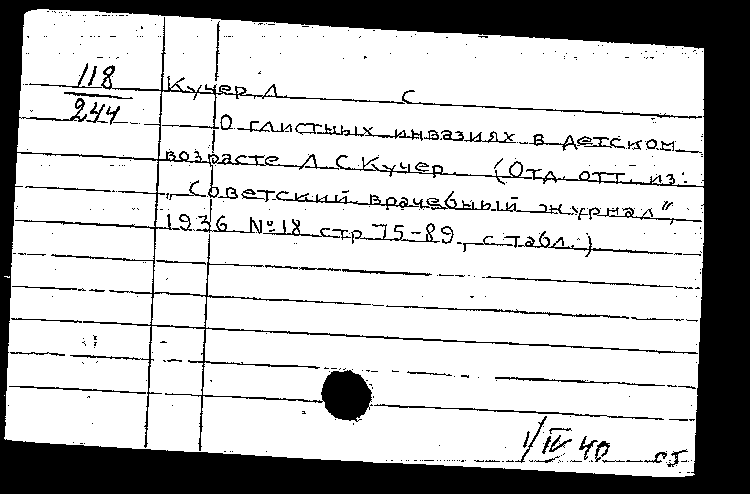 118
244
Кучер, Л. С
О глистных инвазиях в детском
возрасте Л С Кучер. (Отд. отт. из:
"Советский врачебный журнал",
1936 №18 стр 75-89, с табл.)
1/IV 40